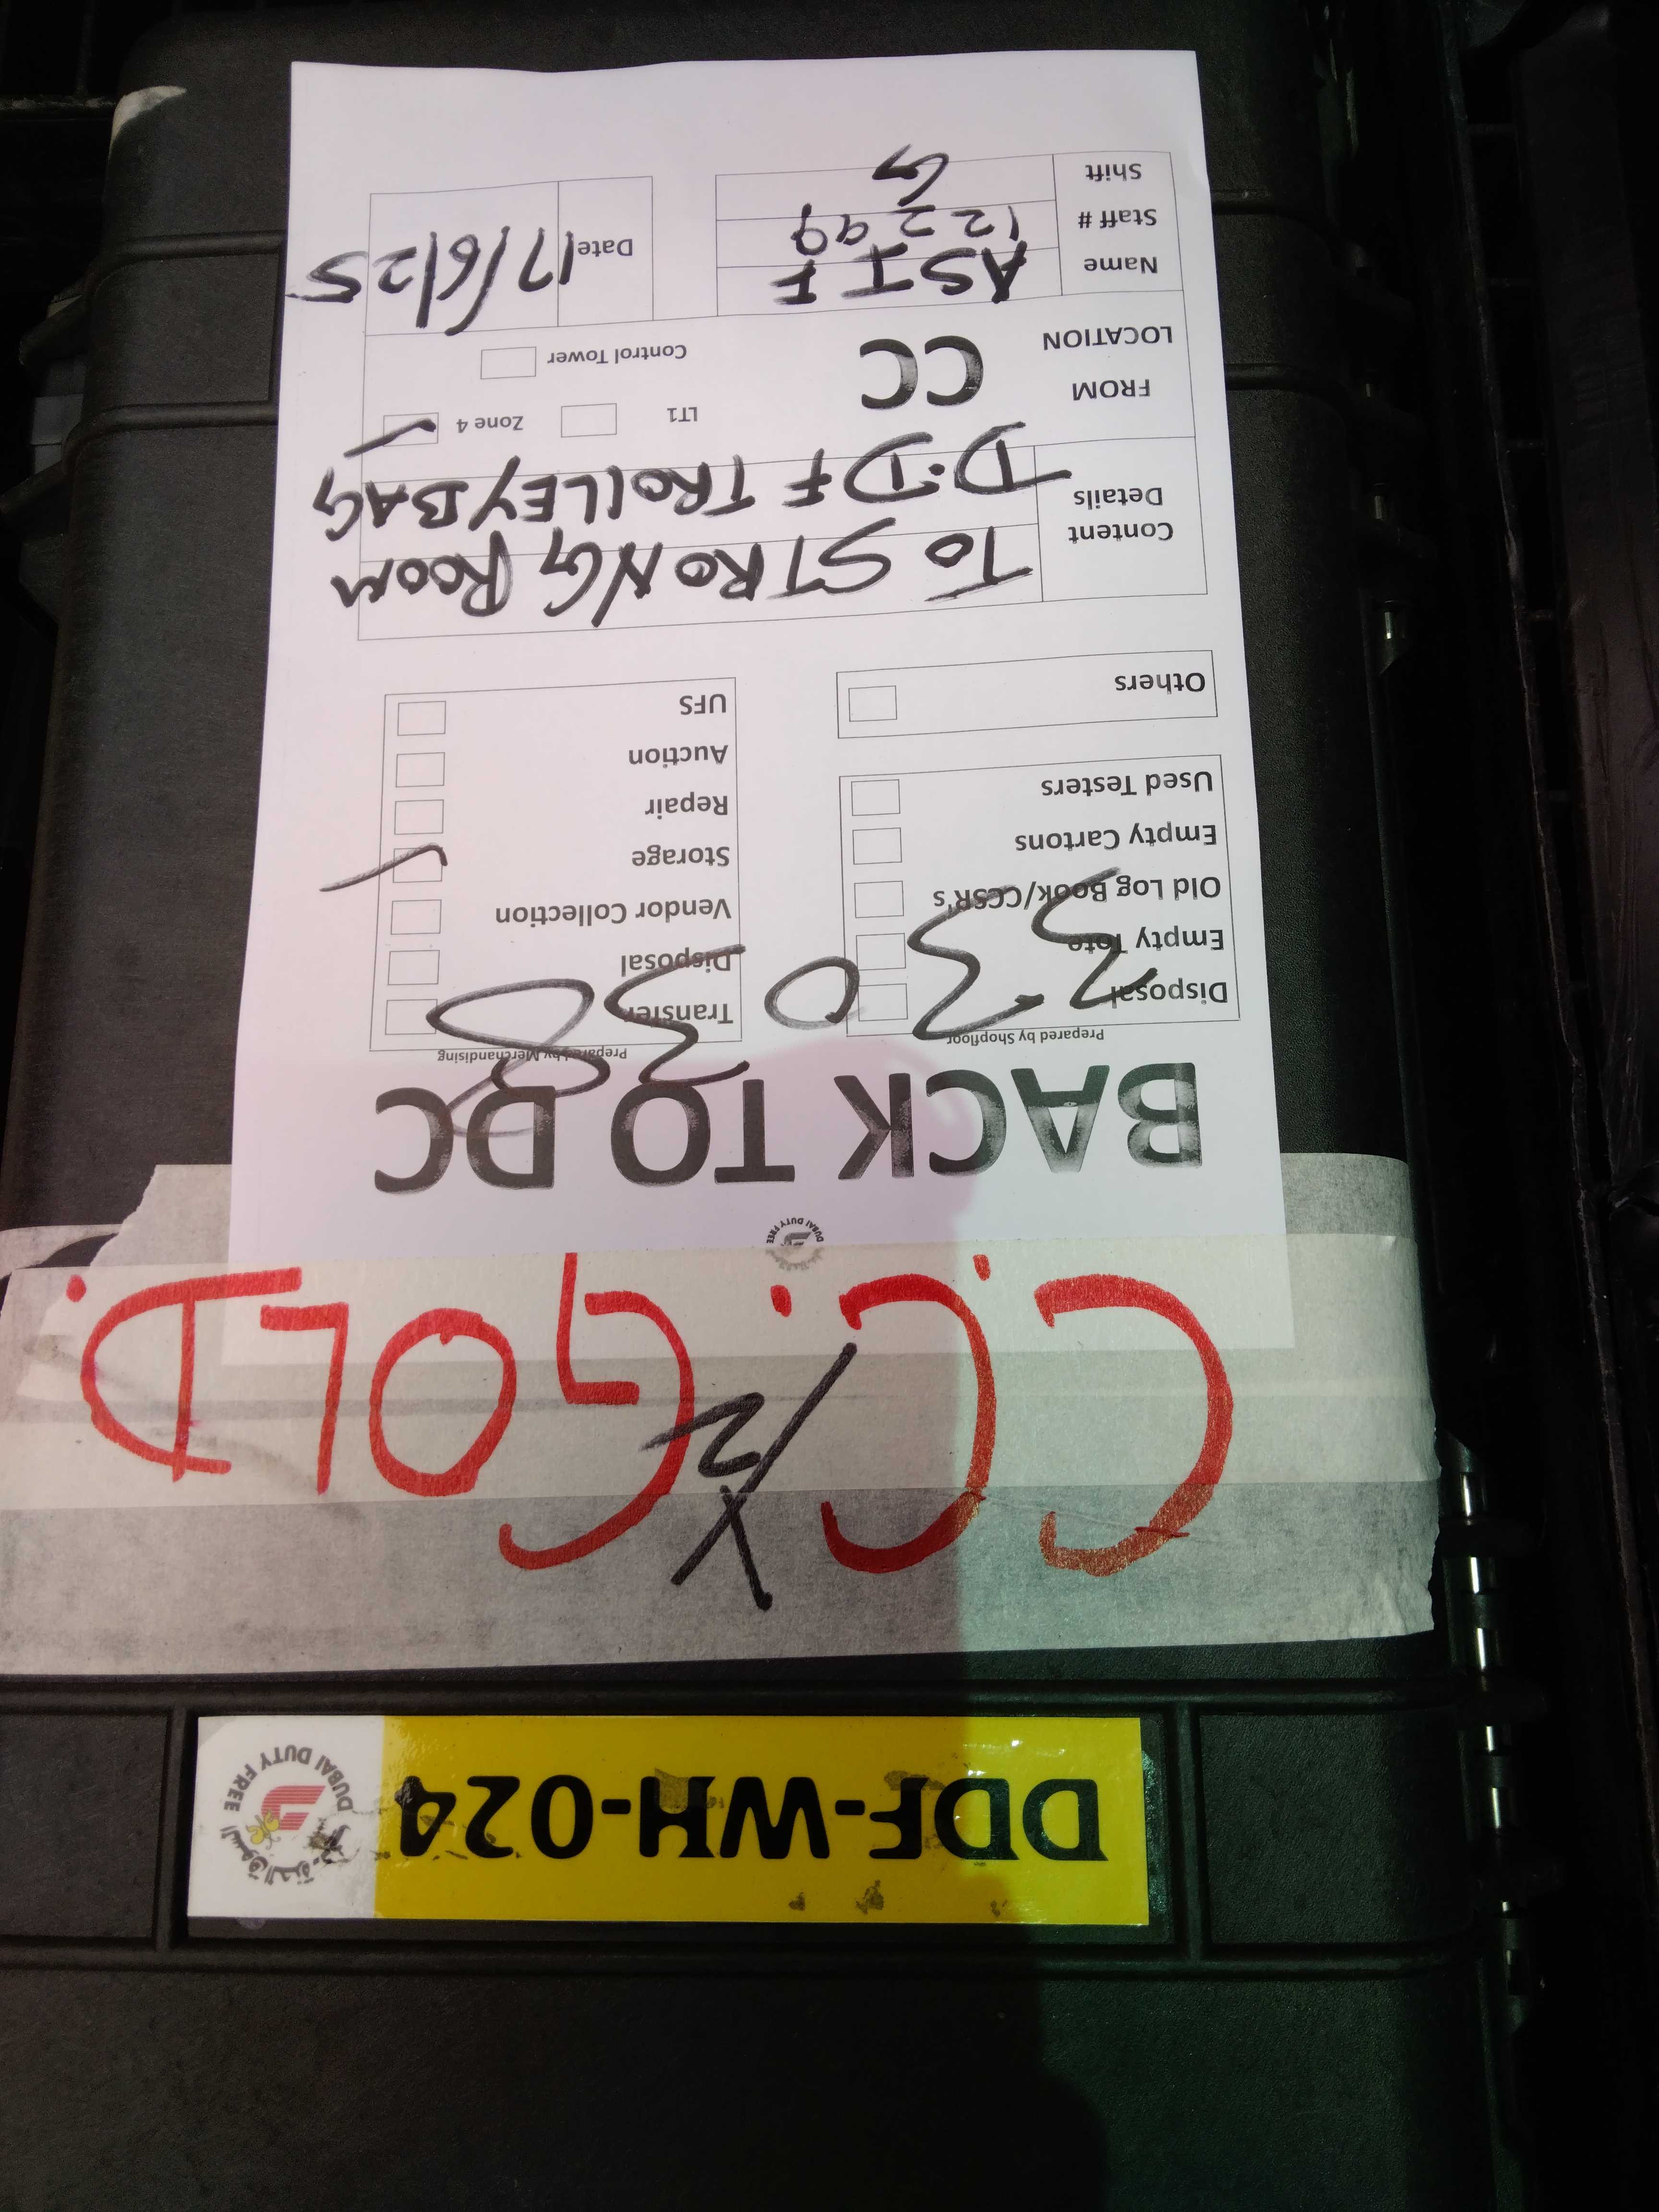 السوق الحرة - دبي
DUBAI DUTY FREE
DDF-WH-024
X/2
C.C. GOLD.
DUBAI DUTY FREE
BACK TO DC
Prepared by Shopfloor
Disposal
Empty Tote
Old Log Book/CCSR's
Empty Cartons
Used Testers
Others
Prepared by Merchandising
Transfer
Disposal
Vendor Collection
Storage
Repair
Auction
UFS
Content Details
TO STRONG ROOM
D.DF TROLLEY BAG
FROM LOCATION
CC
LT1
Zone 4
Control Tower
Name
ASIF
Staff #
12299
Shift
G
Date
17/6/25